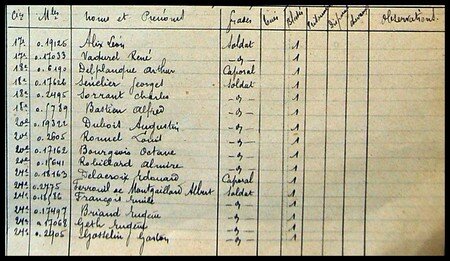 Cie Mles Noms et Prénoms Grades Tués Blessés Observations.
17e 0.19125 Alix Léon Soldat 1
17e 0.17033 Vadurel René -"- 1
18e 0.6190 Delplanque Arthur Caporal 1
18e 0.17626 Sénélier Georges Soldat 1
18e 0.2495 Sorrant Charles -"- 1
18e Bastien Alfred -"- 1
20e 0.19322 Dubois Augustin -"- 1
20e 0.2605 Ronnel Louis -"- 1
20e 0.17162 Bourgeois Octave -"- 1
20e Robillard Almire -"- 1
24e 0.18163 Delacroix Edouard Caporal 1
24e 0.2775 Ferrouil de Montgaillard Albert Soldat 1
24e François Emile -"- 1
24e 0.17497 Briand Eugène -"- 1
24e 0.17068 Geth Eugène -"- 1
24e 0.2905 Gosselin Gaston -"- 1